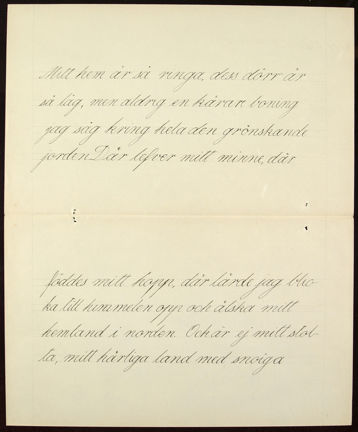 Mitt hem är så ringa, dess dörr är
så låg, men aldrig en kärar boning
jag såg kring hela den grönskande
jorden. Där lefver mitt minne, där
föddes mitt hopp, där lärde jag blic-
ka till himmelen opp och älska mitt
hemland i norden. Och är ej mitt stol-
ta, mitt härliga land med snöiga